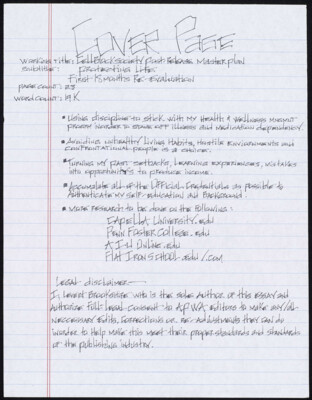 COVER PAGE
WORKING TITLE: CELLBLOCK SOCIETY POST RELEASE MASTER PLAN
SUBTITLE: PROTECTING LIFE:
FIRST 18 MONTHS RE-EVALUATION
PAGE COUNT:
WORD COUNT: 19K
• USING DISCIPLINE TO STICK WITH MY HEALTH & WELLNESS
PROGRAM IN ORDER TO STAVE OFF ILLNESS AND MEDICATION DEPENDENCY.
• AVOIDING UNHEALTHY LIVING HABITS, HOSTILE ENVIRONMENTS AND
CONFRONTATIONAL PEOPLE AS A CHOICE.
• TURNING MY PAST SETBACKS, LEARNING EXPERIENCES, MISTAKES
INTO OPPORTUNITY'S TO PRODUCE INCOME.
• ACCUMULATE ALL OF THE OFFICIAL CREDENTIALS AS POSSIBLE TO
AUTHENTICATE MY SELF-EDUCATION AND BACKGROUND.
• MORE RESEARCH TO BE DONE ON THE FOLLOWING:
CAPELLA UNIVERSITY.EDU
PENN FOSTER COLLEGE.EDU
AIU ONLINE.EDU
FLAT IRON SCHOOL.EDU/.COM
LEGAL DISCLAIMER
I, WHO IS THE SOLE AUTHOR OF THIS ESSAY AND
AUTHORIZE FULL LEGAL CONSENT TO APWA EDITORS TO MAKE ANY/ALL
NECCESSARY EDITS, CORRECTIONS OR RE-ADJUSTMENTS THEY CAN DO
INORDER TO HELP MAKE THIS MEET THEIR PROPER STANDARDS AND STANDARDS
OF THE PUBLISHING INDUSTRY.